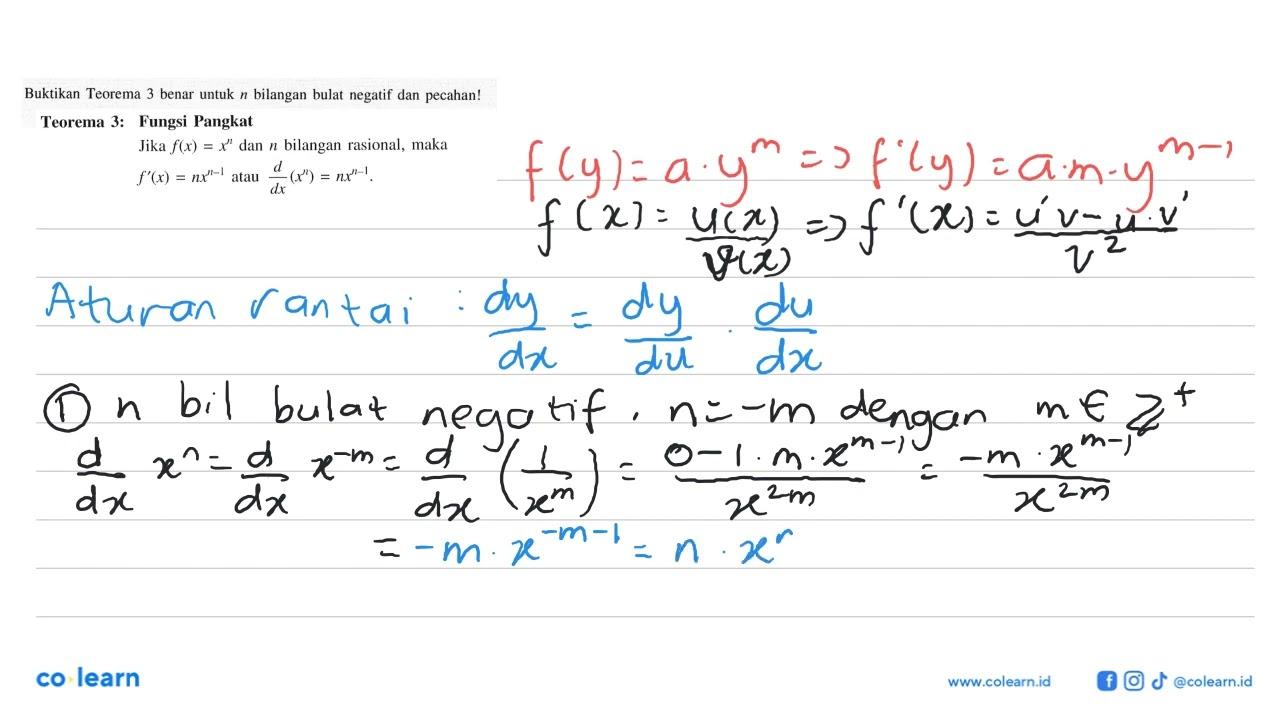 Buktikan Teorema 3 benar untuk n bilangan bulat negatif dan pecahan!
Teorema 3: Fungsi Pangkat
Jika f(x) = xⁿ dan n bilangan rasional, maka
f'(x) = nxⁿ⁻¹ atau d/dx (xⁿ) = nxⁿ⁻¹.
f(y) = a · y^m => f'(y) = a·m·y^(m-1)
f(x) = u(x)/v(x) => f'(x) = (u'v - u·v')/v²
Aturan rantai : dy/dx = dy/du · du/dx
① n bil bulat negatif, n = -m dengan m ∈ Z⁺
d/dx xⁿ = d/dx x^(-m) = d/dx (1/x^m) = (0-1·m·x^(m-1))/x^(2m) = (-m·x^(m-1))/x^(2m)
= -m · x^(-m-1) = n · xⁿ
co learn
www.colearn.id
@colearn.id